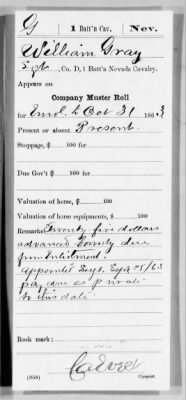 G | 1 Batt'n Cav. | Nev.
William Gray
Sgt, Co. D, 1 Batt'n Nevada Cavalry.
Appears on
Company Muster Roll
for Enrol. to Oct 31, 1863
Present or absent Present
Stoppage, $ 100 for
Due Gov't $ 100 for
Valuation of horse, $ 100
Valuation of horse equipments, $ 100
Remarks: Twenty five dollars
advanced bounty due
from enlistment.
Appointed Sergt. Sept 25/63
pay due as private
to this date.
Book mark:
(858)
Copyist.